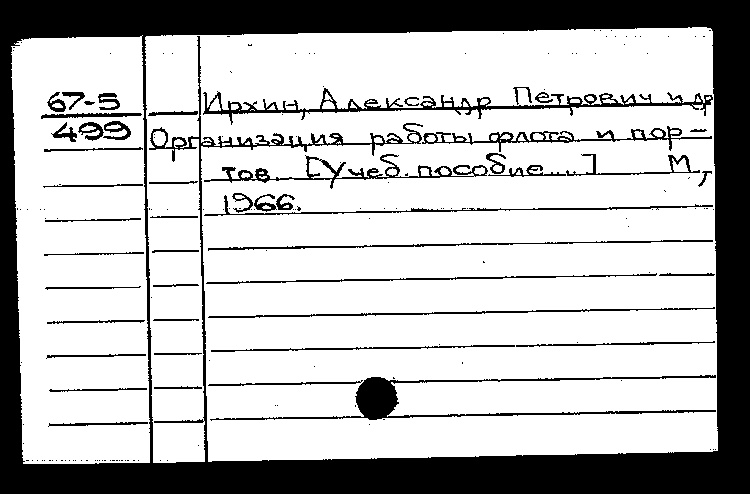 67-5 Ирхин, Александр Петрович и др
499 Организация работы флота и пор-
тов. [Учеб. пособие...] М.,
1966.